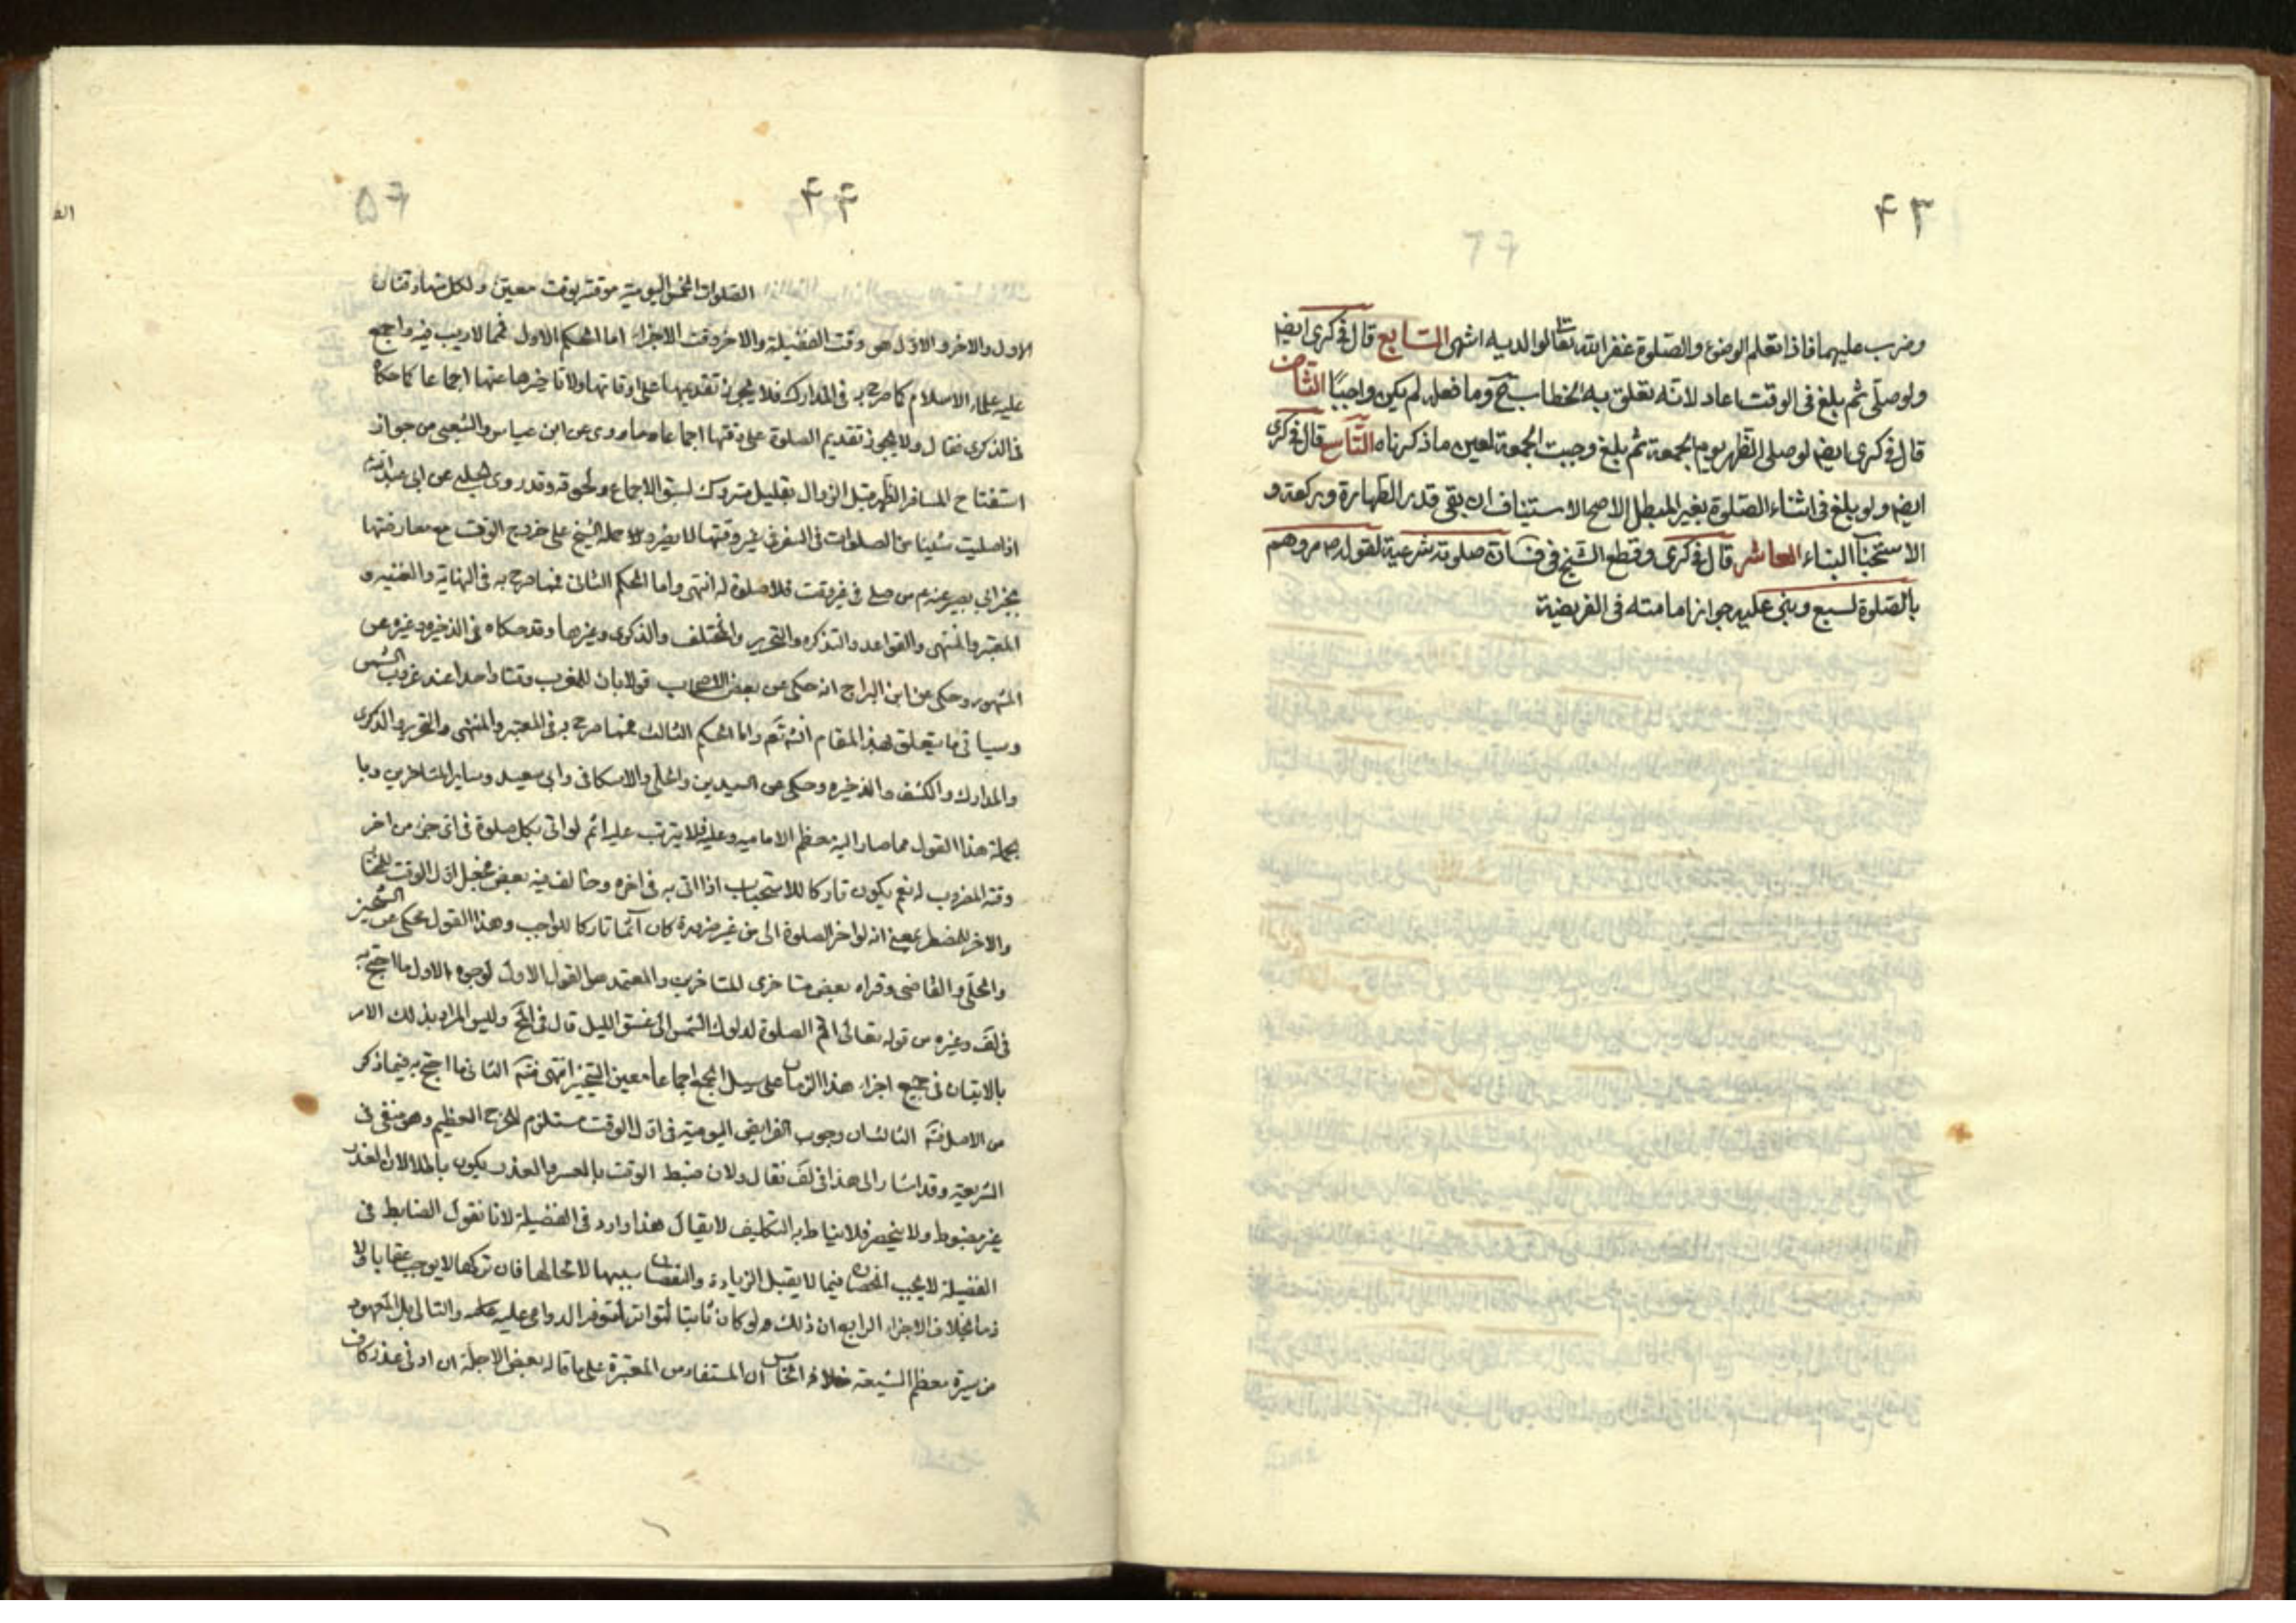 ۴۳
وضرب عليهما فاذا تعلم الوضوء والصلوة غفر الله تعالى لوالديه انتهى السابع قال في كرى ايضا
ولو صلى ثم بلغ في الوقت اعاد لانه تعلق به الخطاب ح وما فعله لم يكن واجبًا الثامن
قال في كرى ايضا لو صلى الظهر يوم الجمعة ثم بلغ وجبت الجمعة لعين ما ذكرناه التاسع قال في كرى
ايضا ولو بلغ في اثناء الصلوة بغير المبطل الاصح الاستيناف ان بقى قدر الطهارة وركعة و
الا استحبا البناء العاشر قال في كرى وقطع الشيخ في ف صلوته شرعية لقوله ص مروهم
بالصلوة لسبع وبنى عليه جواز امامته في الفريضة
۴۴
الصلوات الخمس اليومية موقتة بوقت معين ولكل منها وقتان
الاول والاخر والاول هو وقت الفضيلة والاخر وقت الاجزاء اما الحكم الاول فمما لا ريب فيه واجمع
عليه علماء الاسلام كما صرح به في المدارك فلا يجوز تقديمها على اوقاتها ولا تاخيرها عنها اجماعا كما حكاه
في الذكرى فقال ولا يجوز تقديم الصلوة على وقتها اجماعا وما روى عن ابن عباس والشعبى من جواز
استفتاح المسافر الظهر قبل الزوال بقليل متروك لسبق الاجماع ولحوقه وقد روى الحلبي عن ابى عبد الله
اذا صليت شيئا من الصلوات في السفر في غير وقتها فلا يضرك حمله الشيخ على خروج الوقت مع معارضتها
بخبر ابي بصير عنه م من صلى في غير وقت فلا صلوة له انتهى واما الحكم الثانى فمما صرح به في النهاية والغنيه و
المعتبر والمنتهى والقواعد والتذكره والتحرير والمختلف والذكرى وغيرها وقد حكاه في الذخيره وغيره عن
المشهور وحكى عن ابن البراج انه حكى عن بعض الاصحاب قولا بان للمغرب وقتا واحدا عند غروب الشمس
وسياتى ما يتعلق بهذا المقام انشه تعم واما الحكم الثالث فمما صرح به في المعتبر والمنتهى والتحرير والذكرى
والمدارك والكشف والذخيره وحكى عن السيدين والحلى والاسكافى وابى سعيد وساير المتاخرين وبا
لجملة هذا القول مما صار اليه معظم الاماميه وعليه فلا يترتب عليه اثم لو اتى بكل صلوة في اى جزء من اخر
وقته المضروب له نعم يكون تاركا للاستحباب اذا اتى به في اخره وخالف فيه بعض فجعل اول الوقت للمختار
والاخر للمضطر بمعنى انه لو اخر الصلوة الى من غير ضرورة كان آثما تاركا للواجب وهذا القول محكى عن الشيخين
والحلبى والقاضى وقراه بعض متاخرى المتاخرين والمعتمد هو القول الاول لوجوه الاول ما احتج به
في لف وغيره من قوله تعالى اقم الصلوة لدلوك الشمس الى غسق الليل قال في لح وليس المراد بذلك الامر
بالاتيان في جميع اجزاء هذا الزمان على سبيل الجمع اجماعا فتعين التخيير انتهى فتم الثانى ما احتج به فيما ذكر
من الاصل فتم الثالث ان وجوب الفرايض اليومية في اول الوقت مستلزم للحرج العظيم وهو منفى في
الشريعة وقد اشار الى هذا في لف فقال ولان ضبط الوقت بالعسر والعذر يكون باطلا لان العذر
غير مضبوط ولا ينحصر فلا يناط به التكليف لا يقال هذا وارد في الفضيلة لانا نقول الضابط في
الفضيلة لا يجب انحصاره فيما لا يقبل الزيادة والنقصان سببها لامحالها فان تركها لا يوجب عقابا ولا
ذما بخلاف الاجزاء الرابع ان ذلك لو كان ثابتا لتواتر لتوفر الدواعى عليه والتالى بل المعهود
من سيرة معظم الشيعة خلافه الخامس ان المستفاد من المعتبرة على ما قاله بعض الاجلة ان ادنى عذر كاف